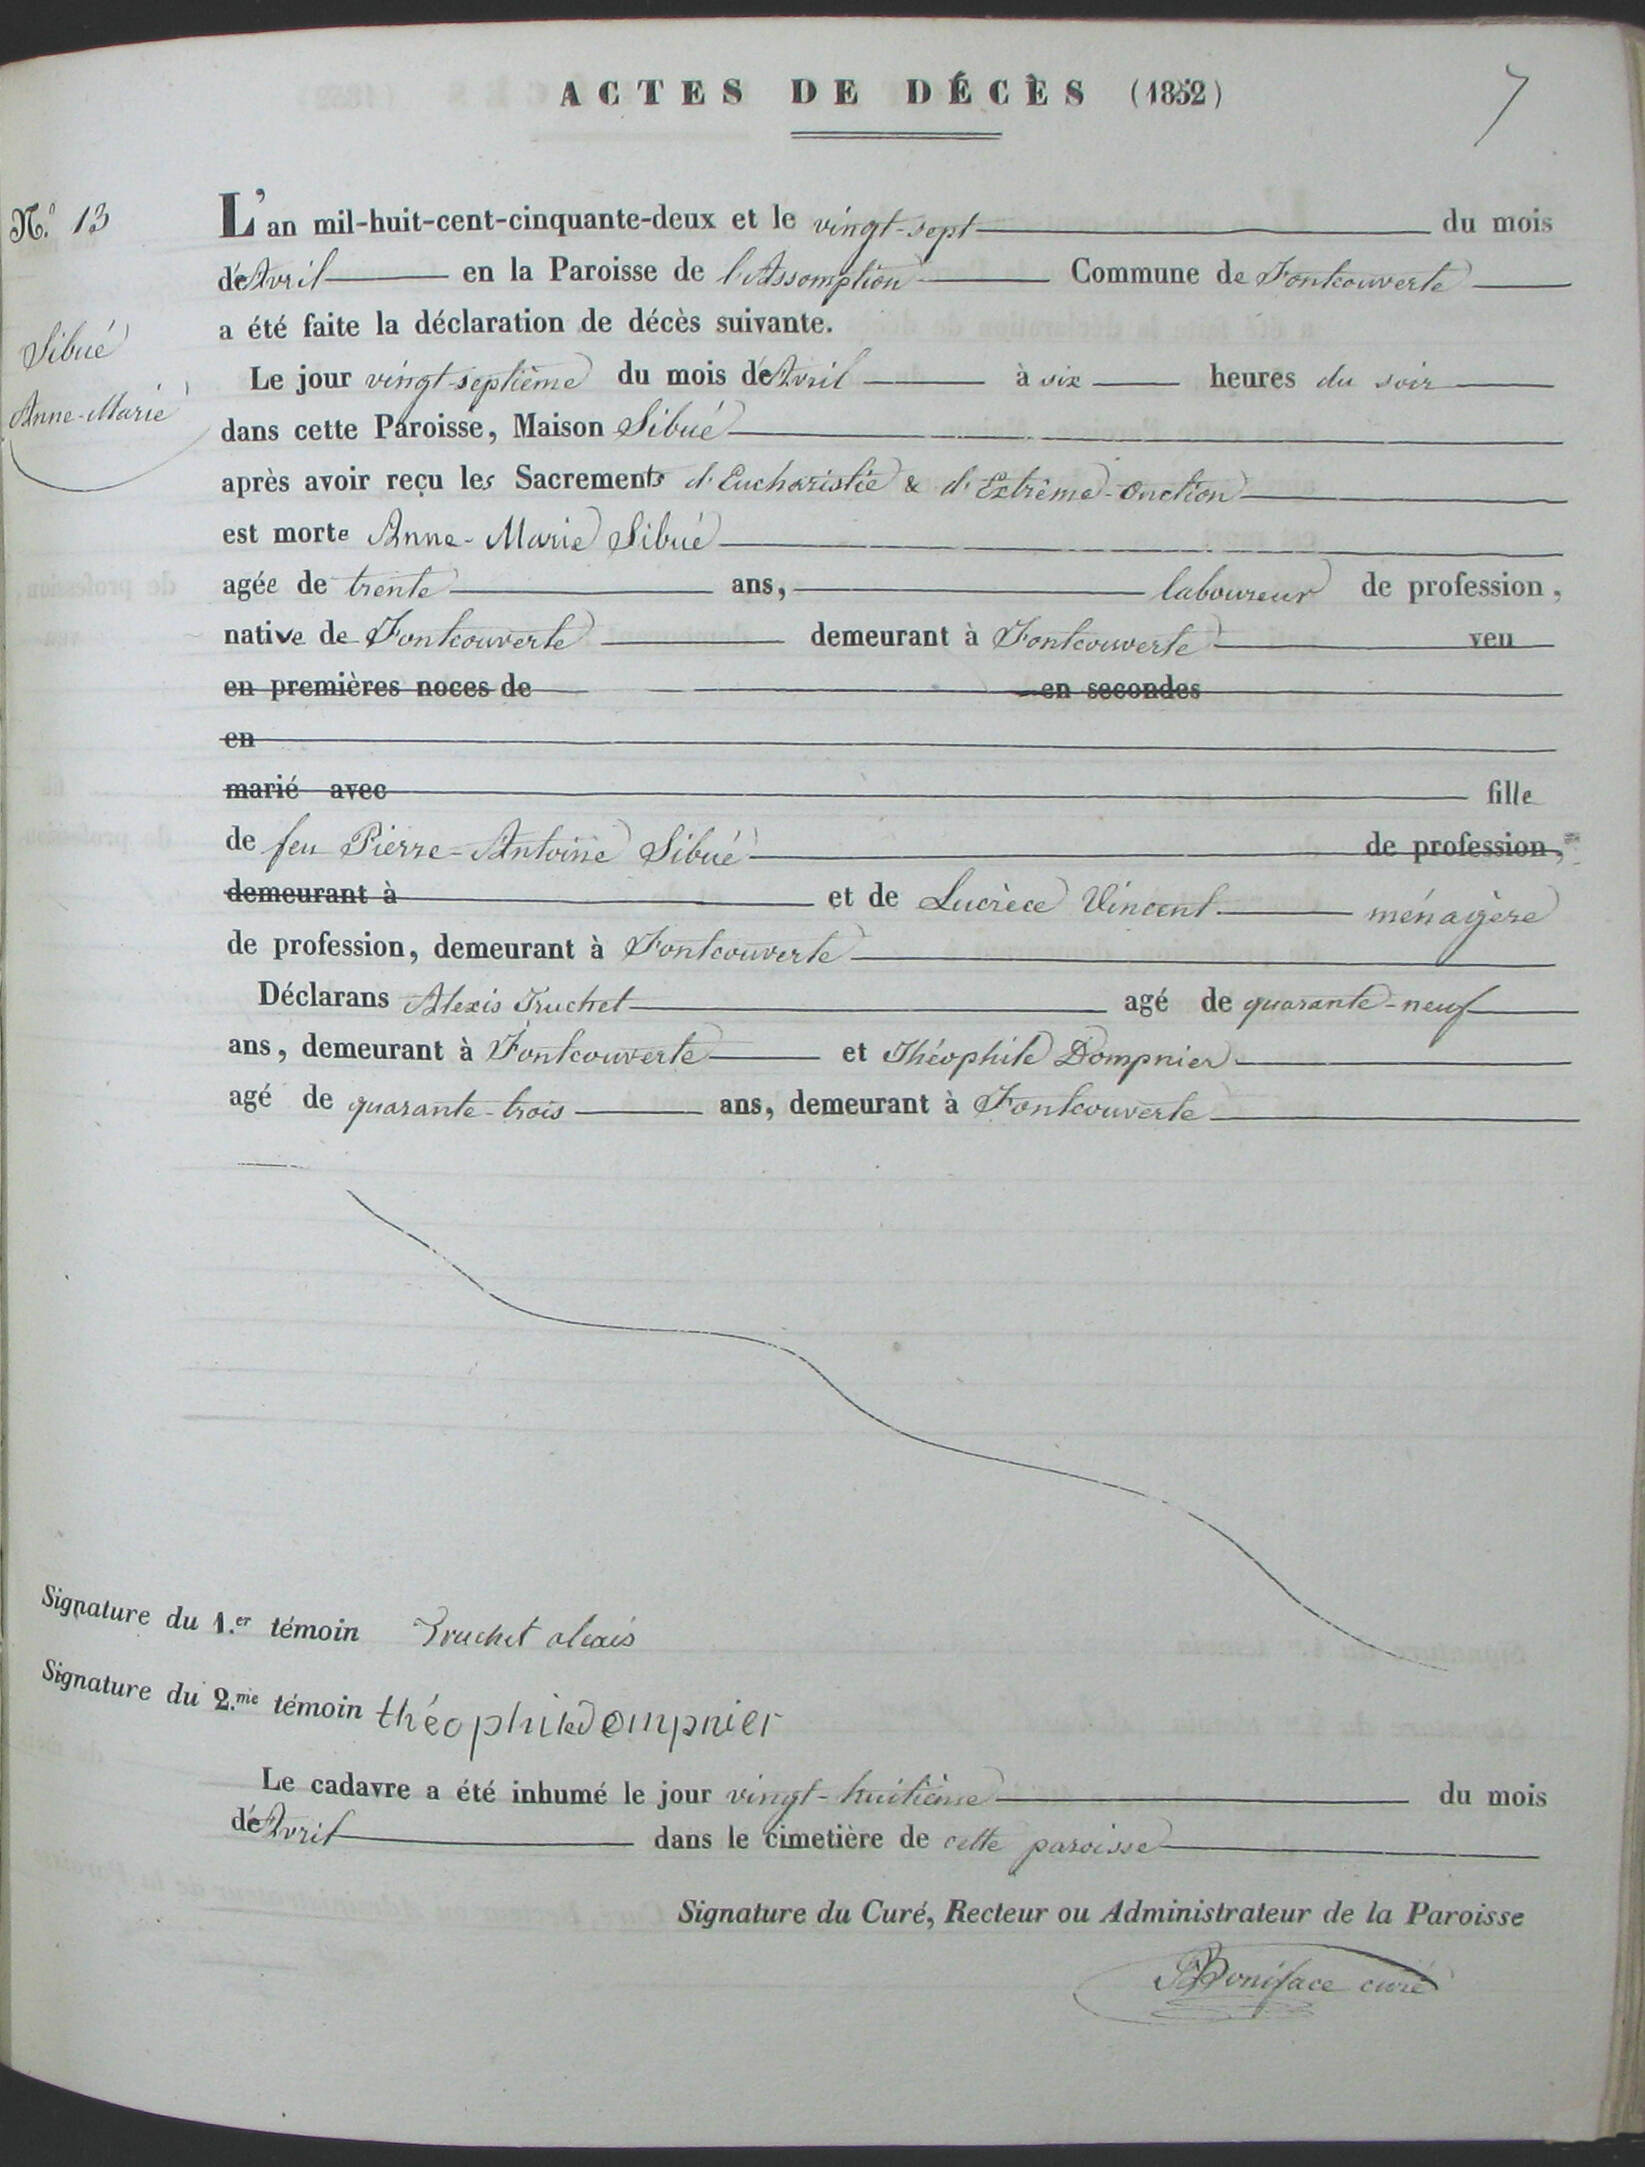 ACTES DE DÉCÈS (1852)
7
N.º 13
Sibué
Anne-Marie
L'an mil-huit-cent-cinquante-deux et le vingt-sept du mois
d'Avril en la Paroisse de l'Assomption Commune de Fontcouverte
a été faite la déclaration de décès suivante.
Le jour vingt-septième du mois d'Avril à six heures du soir
dans cette Paroisse, Maison Sibué
après avoir reçu les Sacrements d'Eucharistie & d'Extrême-Onction
est morte Anne-Marie Sibué
agée de trente ans, laboureur de profession,
native de Fontcouverte demeurant à Fontcouverte veu
en premières noces de en secondes
en
marié avec fille
de feu Pierre-Antoine Sibué de profession,
demeurant à et de Lucrèce Vincent ménagère
de profession, demeurant à Fontcouverte
Déclarans Alexis Truchet agé de quarante-neuf
ans, demeurant à Fontcouverte et Théophile Dompnier
agé de quarante-trois ans, demeurant à Fontcouverte
Signature du 1.er témoin Truchet alexis
Signature du 2.me témoin théophile dompnier
Le cadavre a été inhumé le jour vingt-huitième du mois
d'Avril dans le cimetière de cette paroisse
Signature du Curé, Recteur ou Administrateur de la Paroisse
Boniface curé